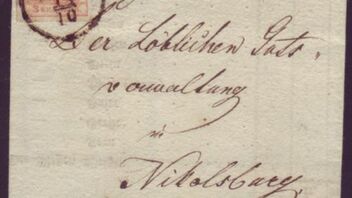 10
Der Löblichen Guts-
verwaltung
in
Nikolsburg.